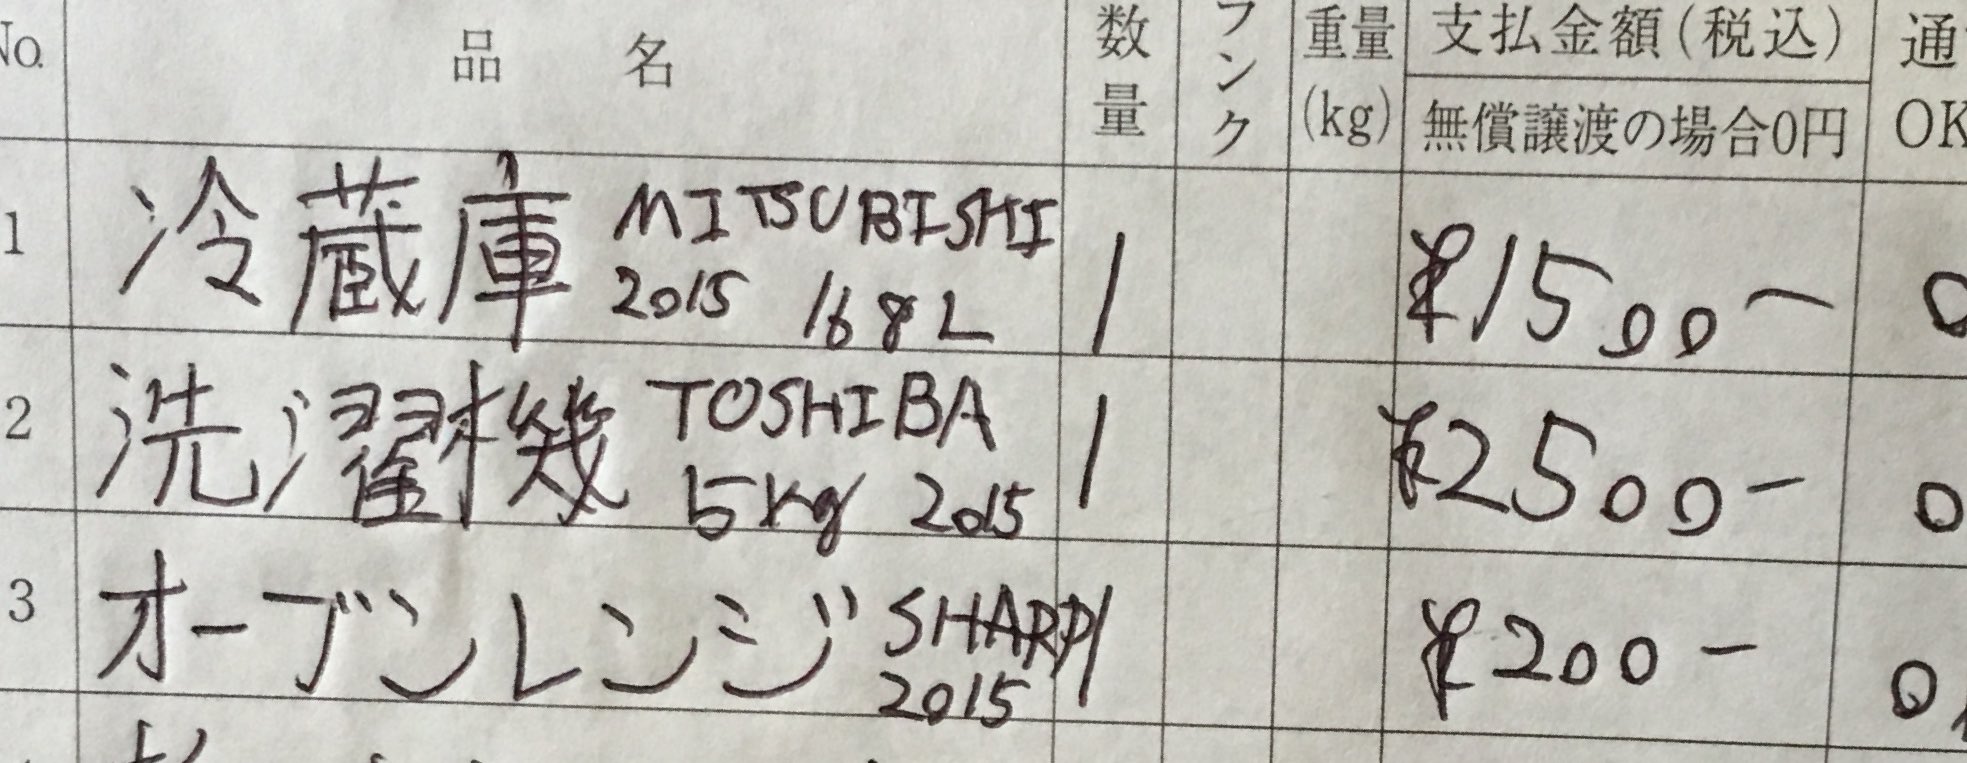 No. 品名 数量 ランク 重量(kg) 支払金額(税込) 通
無償譲渡の場合0円 OK
1 冷蔵庫 MITSUBISHI 2015 168L 1 ¥1500-
2 洗濯機 TOSHIBA 5kg 2015 1 ¥2500-
3 オーブンレンジ SHARP 2015 1 ¥200-